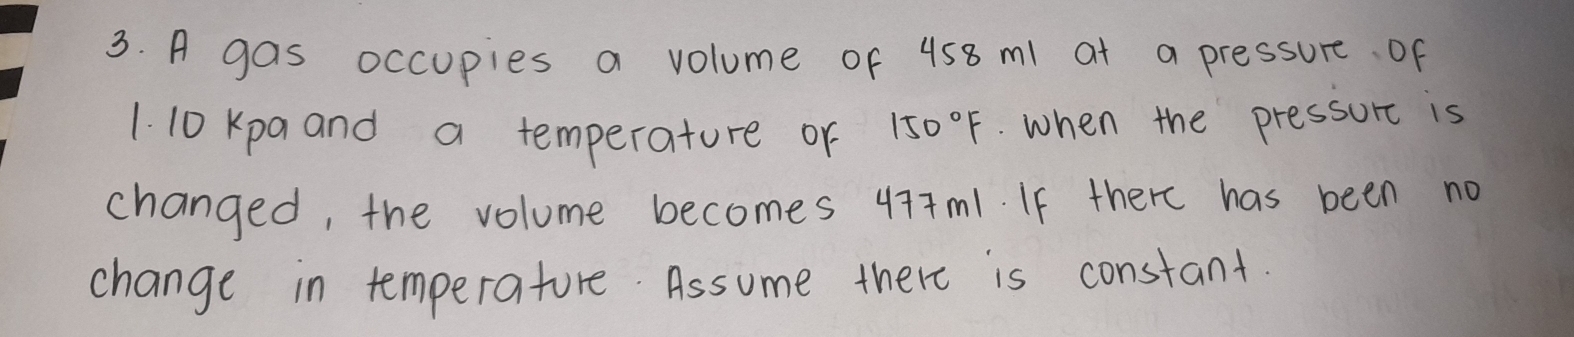 3. A gas occupies a volume of 458 ml at a pressure of
1.10 Kpa and a temperature of 150°F. When the pressure is
changed, the volume becomes 477ml. If there has been no
change in temperature. Assume there is constant.